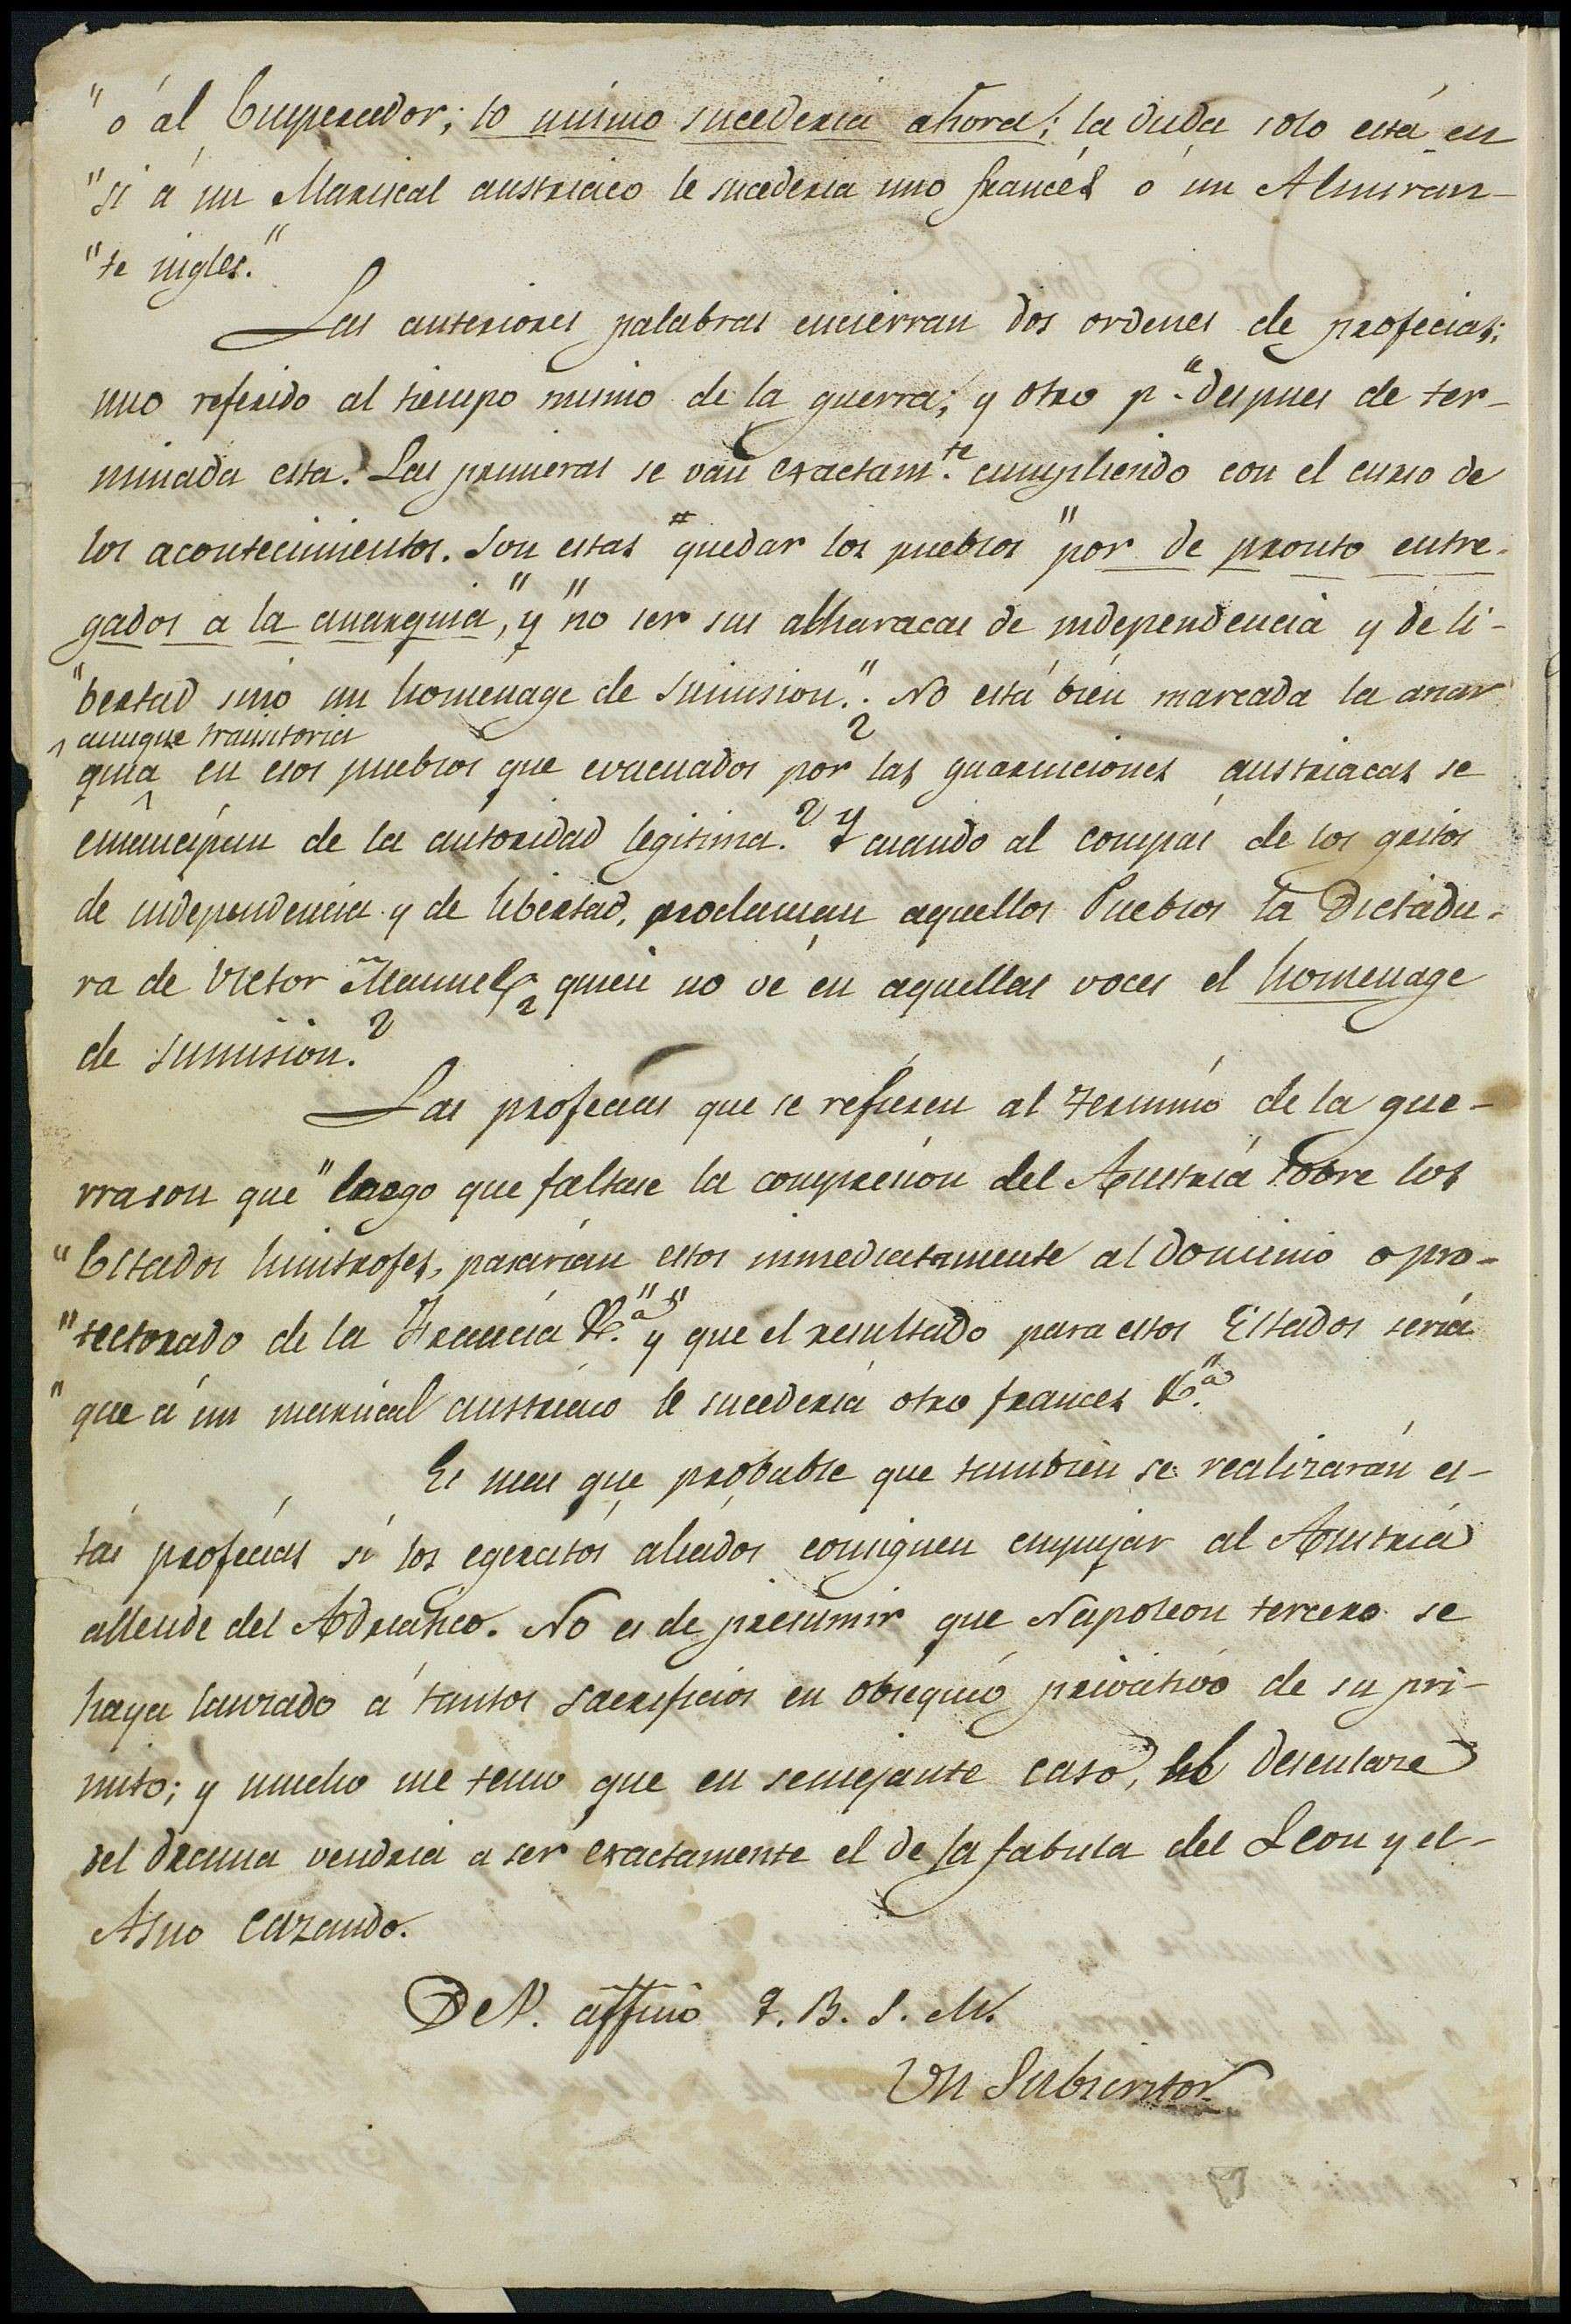 "o al Emperador; lo mismo sucederia ahora; la duda solo está en
"si á un Mariscal austriaco le sucederia uno francés ó un Almiran-
"te ingles."
Las anteriores palabras encierran dos ordenes de profecias;
uno referido al tiempo mismo de la guerra; y otro p.ª despues de ter-
minada esta. Las primeras se van exactam.te cumpliendo con el curso de
los acontecimientos. Son estas "quedar los pueblos "por de pronto entre-
gados a la anarquia," y "no ser sus alharacas de independencia y de li-
"bertad sinó un homenage de sumision.". No está bien marcada la anar
aunque transitoria
quia en esos pueblos que evacuados por las guarniciones austriacas se
emancipan de la autoridad legitima? Y cuando al compás de los gritos
de independencia y de libertad, proclaman aquellos Pueblos la Dictadu-
ra de Victor Manuel, ¿quien no vé en aquellas voces el homenage
de sumision?
Las profecias que se refieren al termino de la gue-
rra son que "luego que faltase la compresion del Austria sobre los
"Estados limitrofes, pasarian estos inmediatamente al dominio o pro-
"tectorado de la Francia &.ª" y "que el resultado para estos Estados seria
"que á un mariscal austriaco le sucederia otro frances &.ª"
Es mas que probable que tambien se realizarán es-
tas profecias si los egercitos aliados consiguen empujar al Austria
allende del Adriatico. No es de presumir que Napoleon tercero se
haya lanzado á tantos sacrificios en obsequio privativo de su pri-
mito; y mucho me temo que en semejante caso, el desenlace
del drama vendria a ser exactamente el de la fabula del Leon y el
Asno cazando.
De V. affmo Q. B. S. M.
Un Subscritor